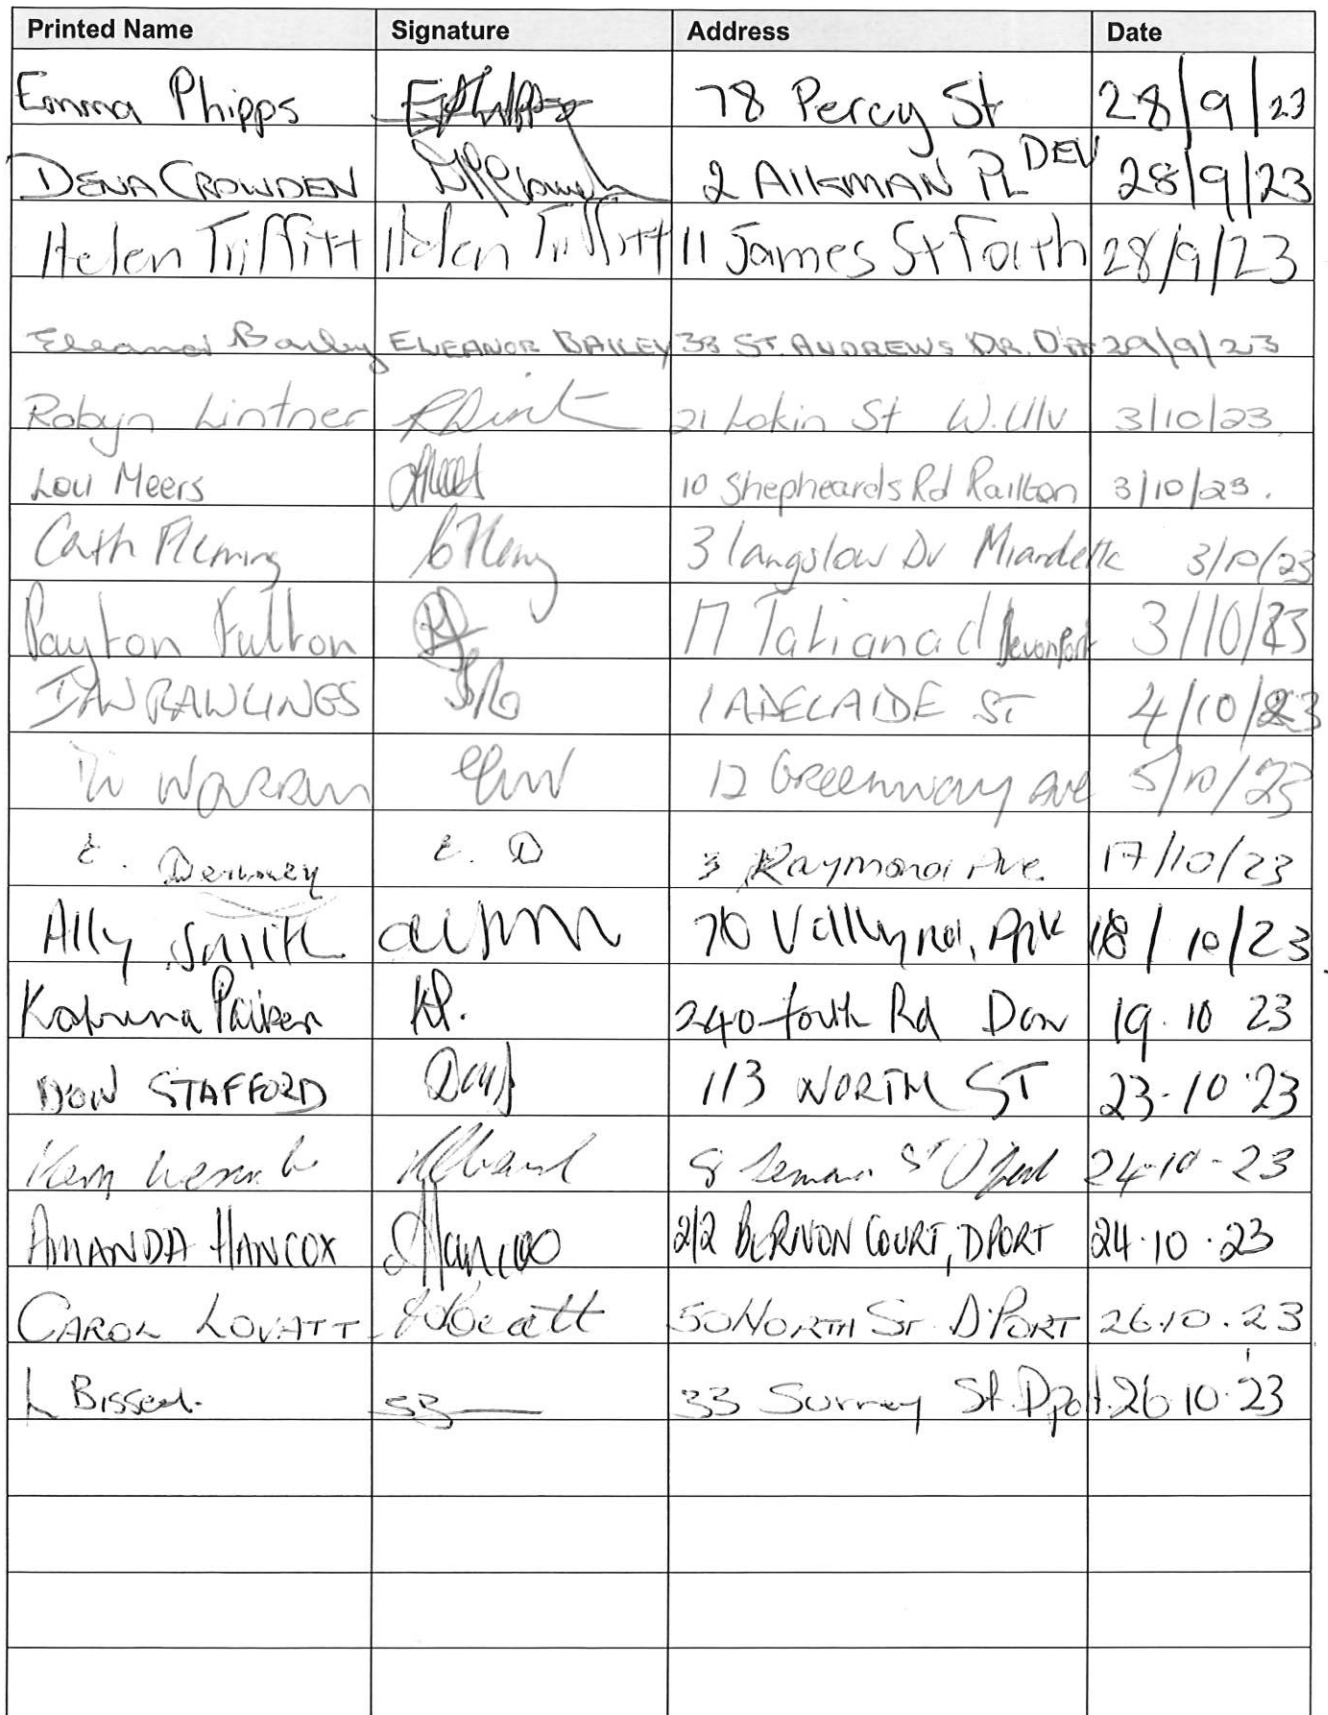 Printed Name Signature Address Date
Emma Phipps EPhipps 78 Percy St 28/9/23
DENA CROWDEN 2 AIKMAN PL DEV 28/9/23
Helen Triffitt Helen Triffitt 11 James St Forth 28/9/23
Eleanor Bailey ELEANOR BAILEY 33 ST. ANDREWS DR. 29/9/23
Robyn Lintner 21 Lakin St W.Ulv 3/10/23
Lou Meers 10 Shepheards Rd Railton 3/10/23.
Cath Fleming 3 Langslow Dv 3/10/23
Payton Fulton 17 Tatiana Devonport 3/10/23
IAN RAWLINGS 1 ADELAIDE ST 4/10/23
Di WARREN 12 Greenway Ave 5/10/23
E. E. D 3 Raymond Ave. 17/10/23
Ally Smith 70 18/10/23
Katrina KP. 240 Forth Rd Don 19.10 23
DON STAFFORD 113 NORTH ST 23-10-23
24-10-23
AMANDA HANCOX 2/2 COURT, DPORT 24.10.23
CAROL LOVATT 50 NORTH ST D'PORT 26.10.23
L Bissel. 33 Surrey St. Dport. 26.10.23